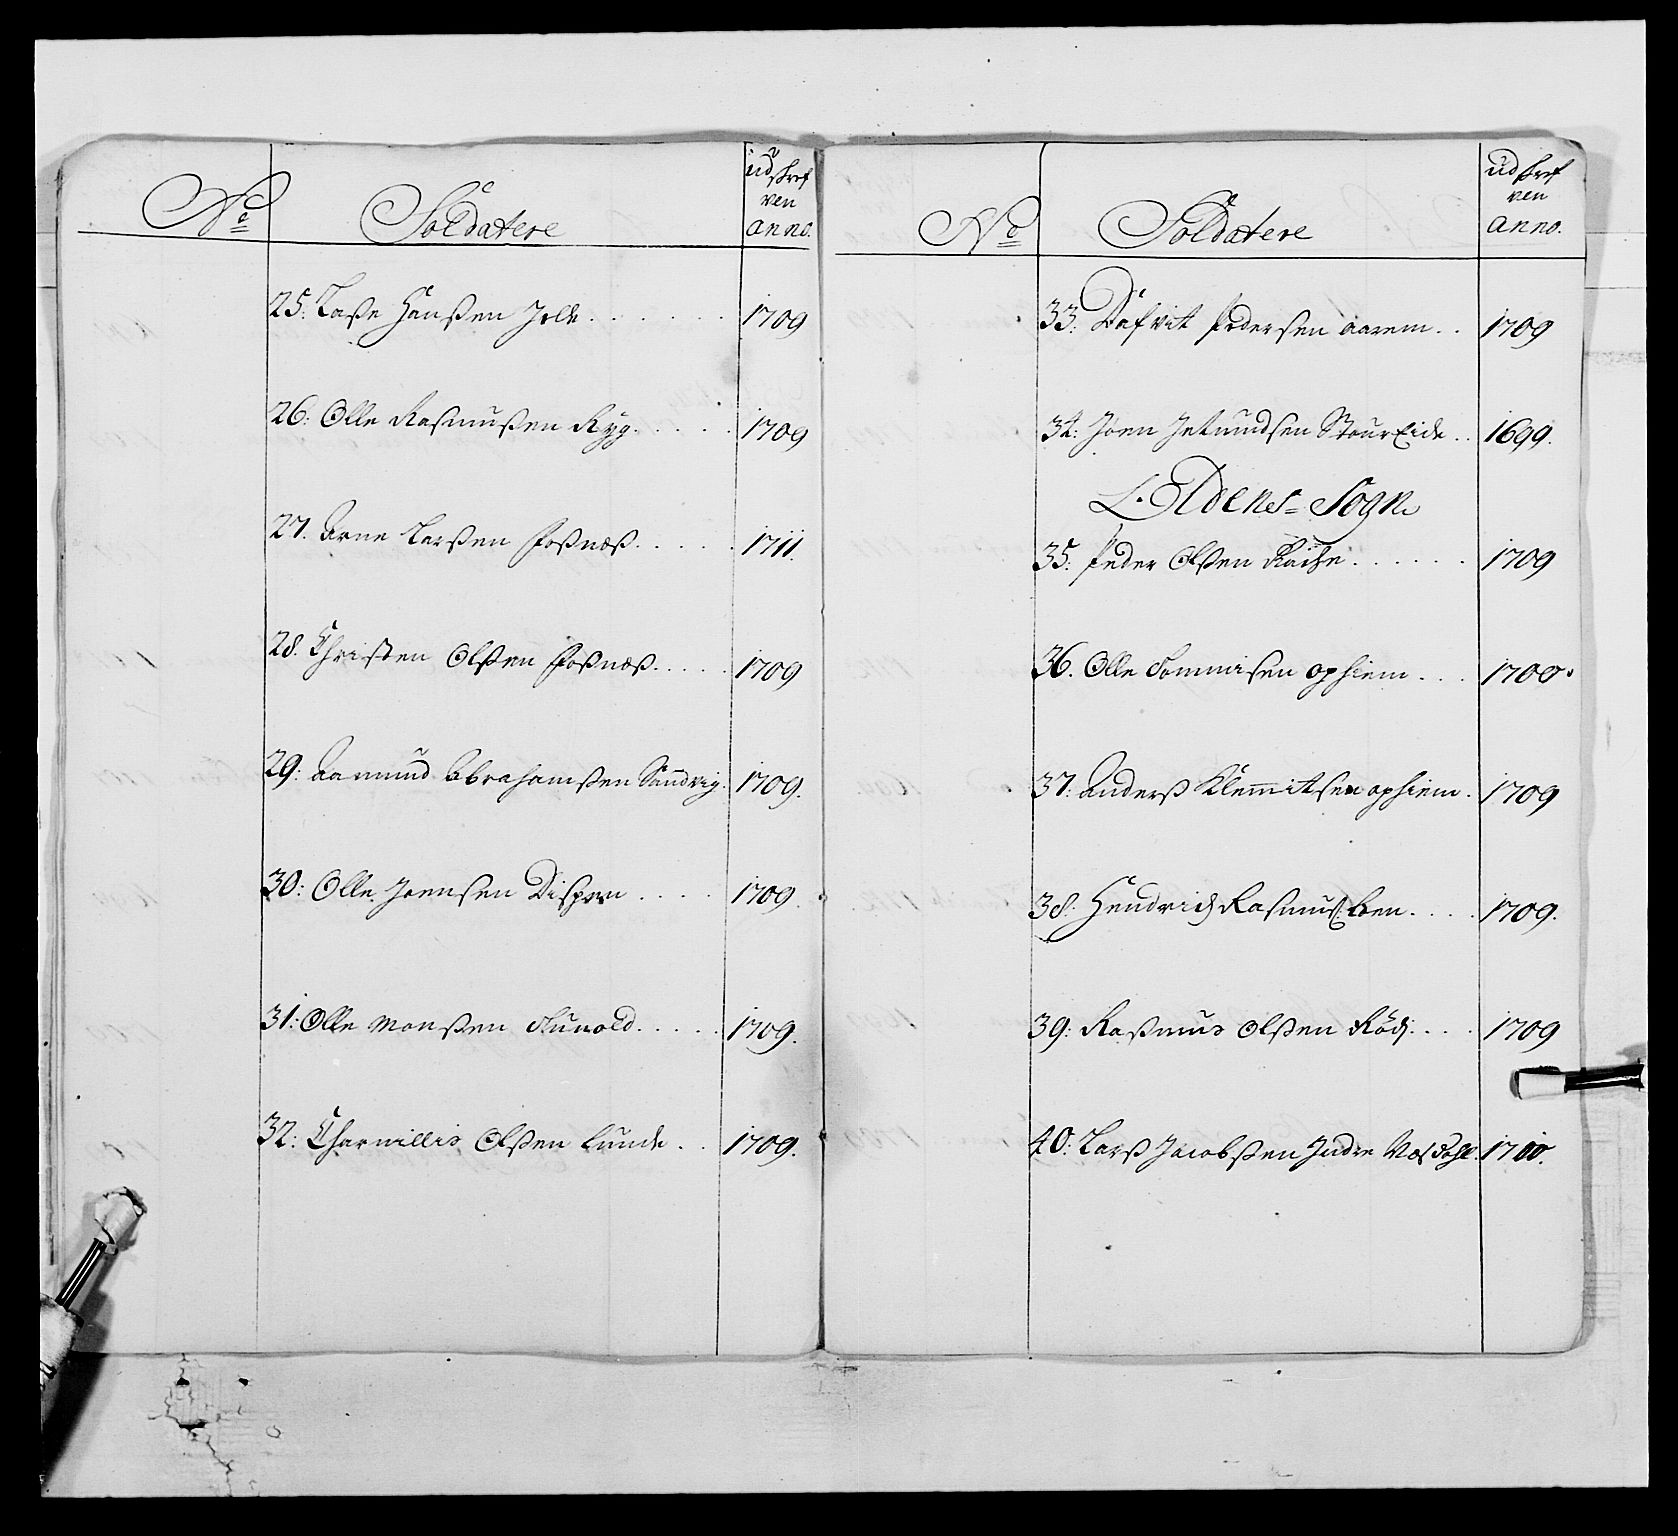 No
Soldatere
udskref
ven
anno.
25: Lasse Hanßen Jelde . . . . . . 1709
26: Olle Rasmusßen Ryg . . . . . 1709
27. Arne Larßen Foßnæß . . . . . 1711.
28. Christen Olßen Foßnæß . . . . 1709
29: Aamund Abrahamßen Sandvig. 1709.
30: Olle Joensen Dispen . . . . 1709.
31: Olle Monßen Fluvold . . . . . 1709.
32: Charnillis Olßen Lunde . . 1709.
No
Soldatere
udskref
ven
anno.
33: Dafvit Pedersen aarem . . 1709
34: Joen Jetmundsen StourEide . . 1699.
Oldens Sogn
35: Peder Olßen . . . . . . 1709
36. Olle Tommisen opHiem . . . 1700.
37: Anderß Klemmitsen opHiem. 1709
38: Hendrich Rasmus: Bøen . . . . 1709.
39: Raßmus Olßen Rød: . . . 1709
40: Larß Jacobßen Indre 1710.